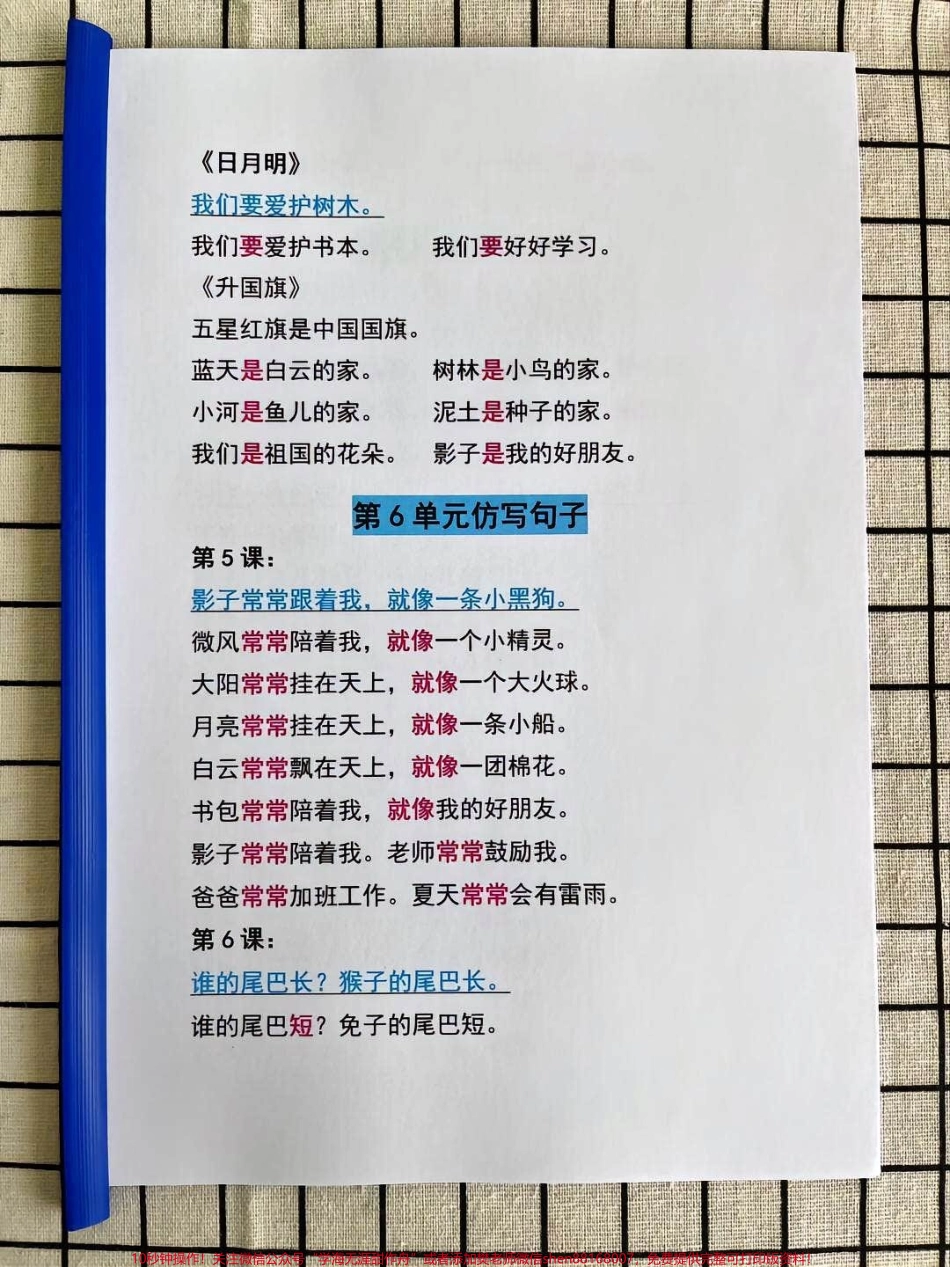 《日月明》
我们要爱护树木。
我们要爱护书本。 我们要好好学习。
《升国旗》
五星红旗是中国国旗。
蓝天是白云的家。 树林是小鸟的家。
小河是鱼儿的家。 泥土是种子的家。
我们是祖国的花朵。 影子是我的好朋友。
第6单元仿写句子
第5课：
影子常常跟着我，就像一条小黑狗。
微风常常陪着我，就像一个小精灵。
大阳常常挂在天上，就像一个大火球。
月亮常常挂在天上，就像一条小船。
白云常常飘在天上，就像一团棉花。
书包常常陪着我，就像我的好朋友。
影子常常陪着我。老师常常鼓励我。
爸爸常常加班工作。夏天常常会有雷雨。
第6课：
谁的尾巴长？猴子的尾巴长。
谁的尾巴短？免子的尾巴短。
10秒钟操作！关注微信公众号